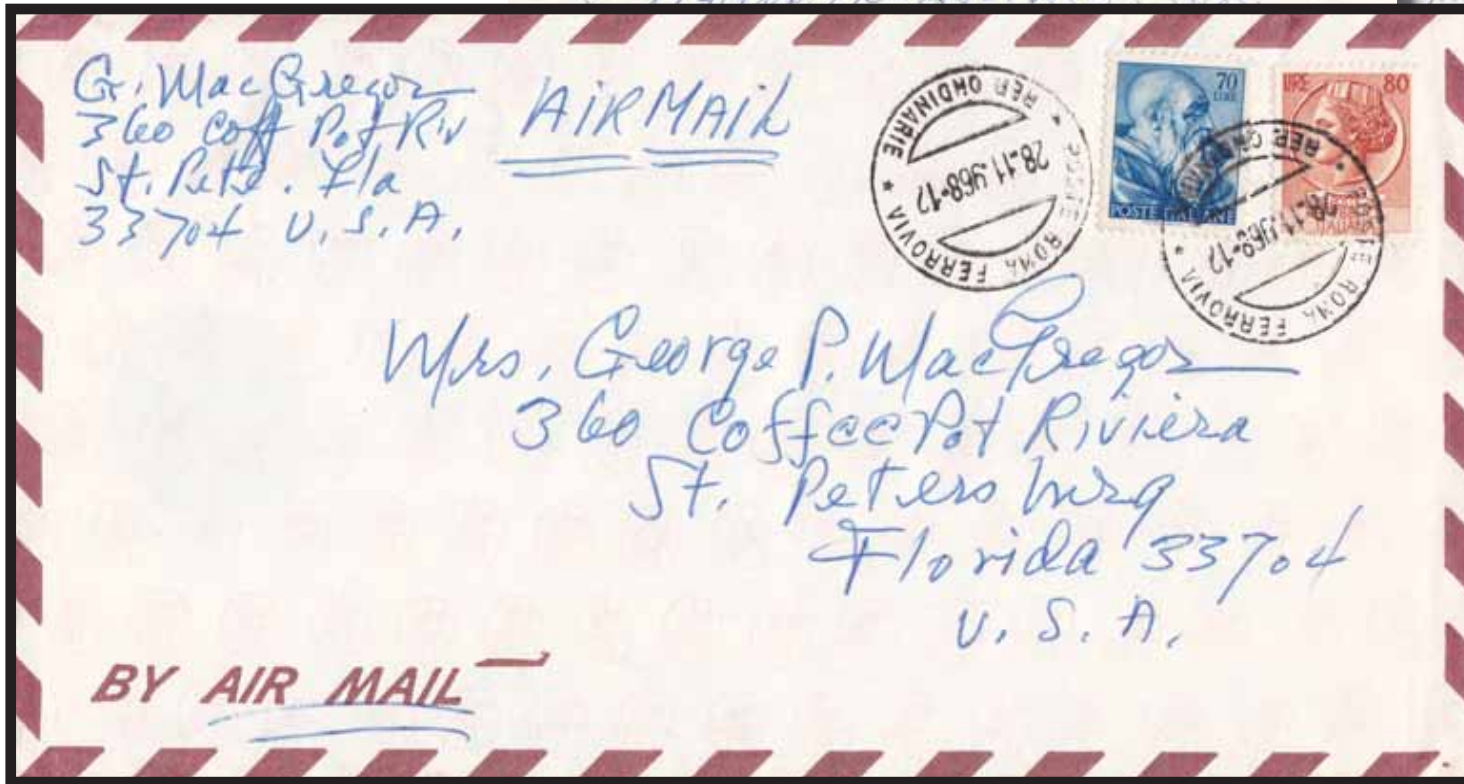 G. MacGregor
360 Coff Pot Riv
St. Pete. Fla
33704 U.S.A.
AIR MAIL
POSTE ROMA FERROVIA
RER ORDINARIE
28-11.1968-17
70
LIRE
POSTE ITALIANE
LIRE 80
ITALIANE
POSTE ROMA FERROVIA
RER ORDINARIE
28-11.1968-17
Mrs. George P. MacGregor
360 Coffee Pot Riviera
St. Petersburg
Florida 33704
U.S.A.
BY AIR MAIL